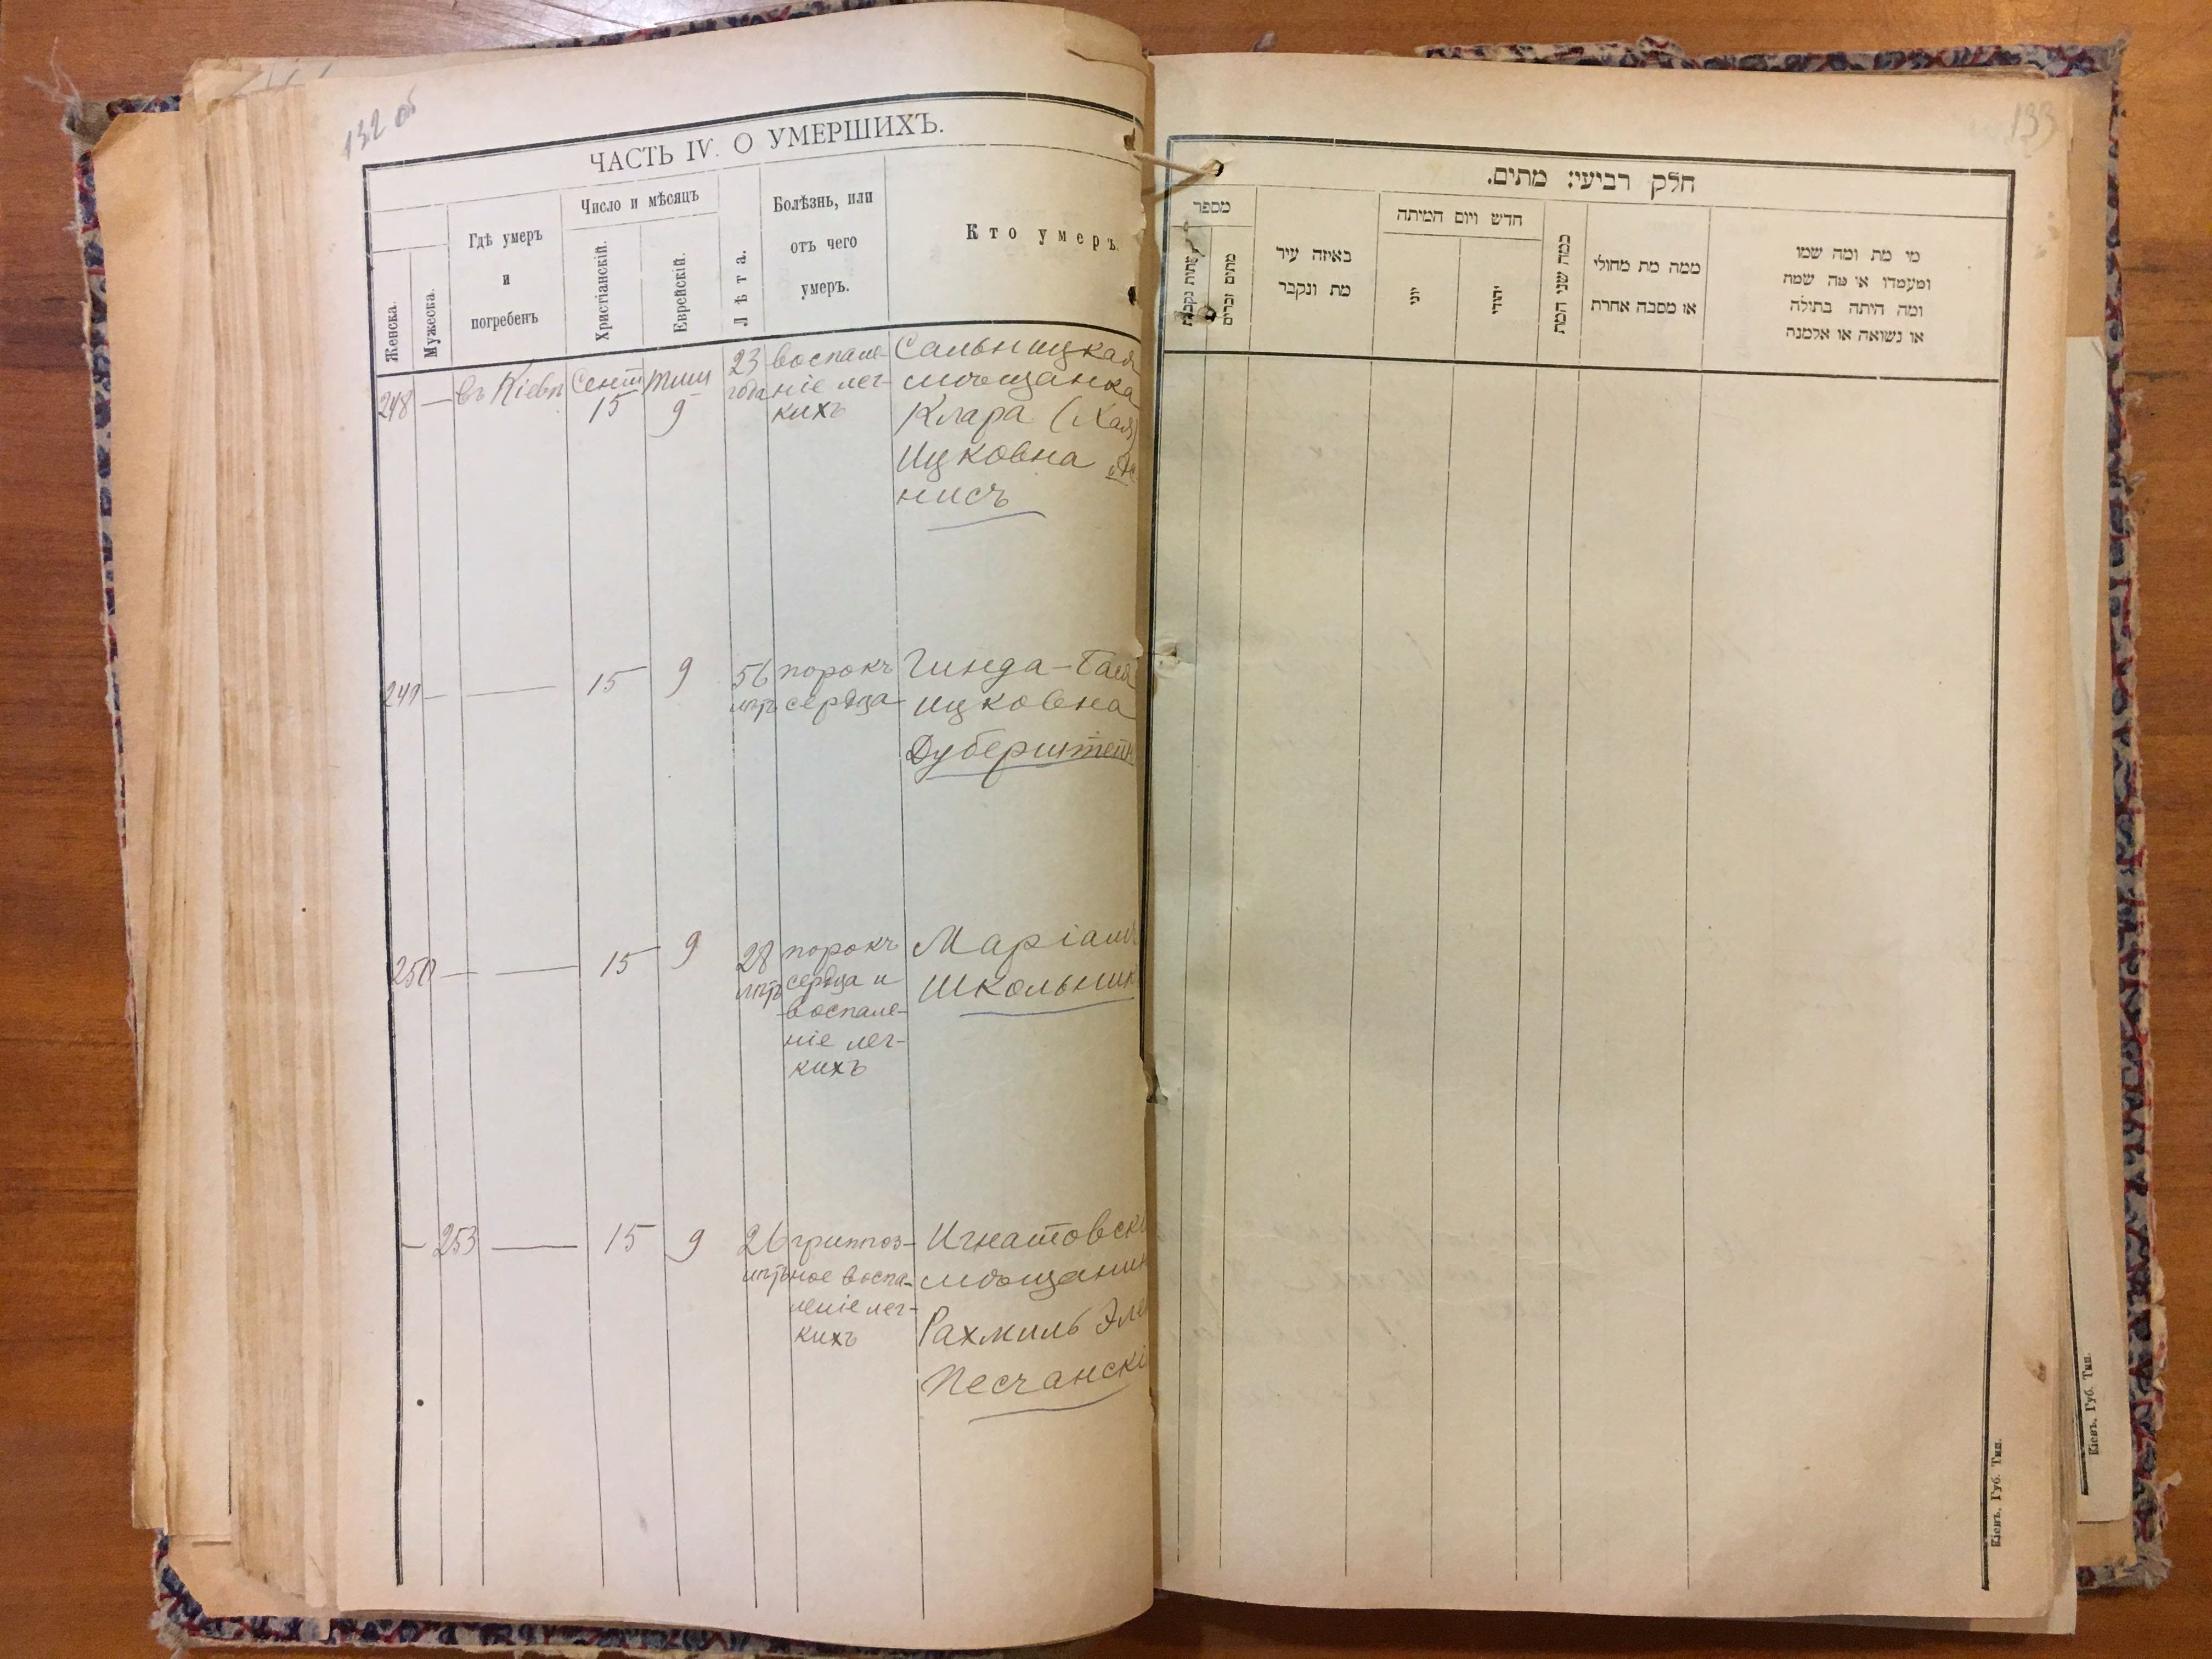 132 об
ЧАСТЬ IV. О УМЕРШИХЪ.
Женска.
Мужеска.
Гдѣ умеръ
и
погребенъ
Число и мѣсяцъ
Христіанскій.
Еврейскій.
Лѣта.
Болѣзнь, или
отъ чего
умеръ.
Кто умеръ
248 — въ Кіевѣ Сент 15 Тиш 9
23 года
воспале-
ніе лег-
кихъ
Сальницкая
мѣщанка
Клара (Хая)
Ицковна
нисъ
249 — — 15 9
56 лѣтъ
порокъ
сердца
Гинда-Бася
Ицковна
Дуберштейн
250 — — 15 9
28 лѣтъ
порокъ
сердца и
воспале-
ніе лег-
кихъ
Маріамъ
Школьник
— 253 — 15 9
26 лѣтъ
гриппоз-
ное воспа-
леніе лег-
кихъ
Игнатовск
мѣщанин
Рахмиль
Песчанскі
133
חלק רביעי: מתים.
מספר
מתים זכרים
באיזה עיר
מת ונקבר
חדש ויום המיתה
יוני
יהודי
כמה שני המת
ממה מת מחולי
או מסבה אחרת
מי מת ומה שמו
ומעמדו או מה שמה
ומה היתה בתולה
או נשואה או אלמנה
Кіевъ, Губ. Тип.
Кіевъ, Губ. Тип.